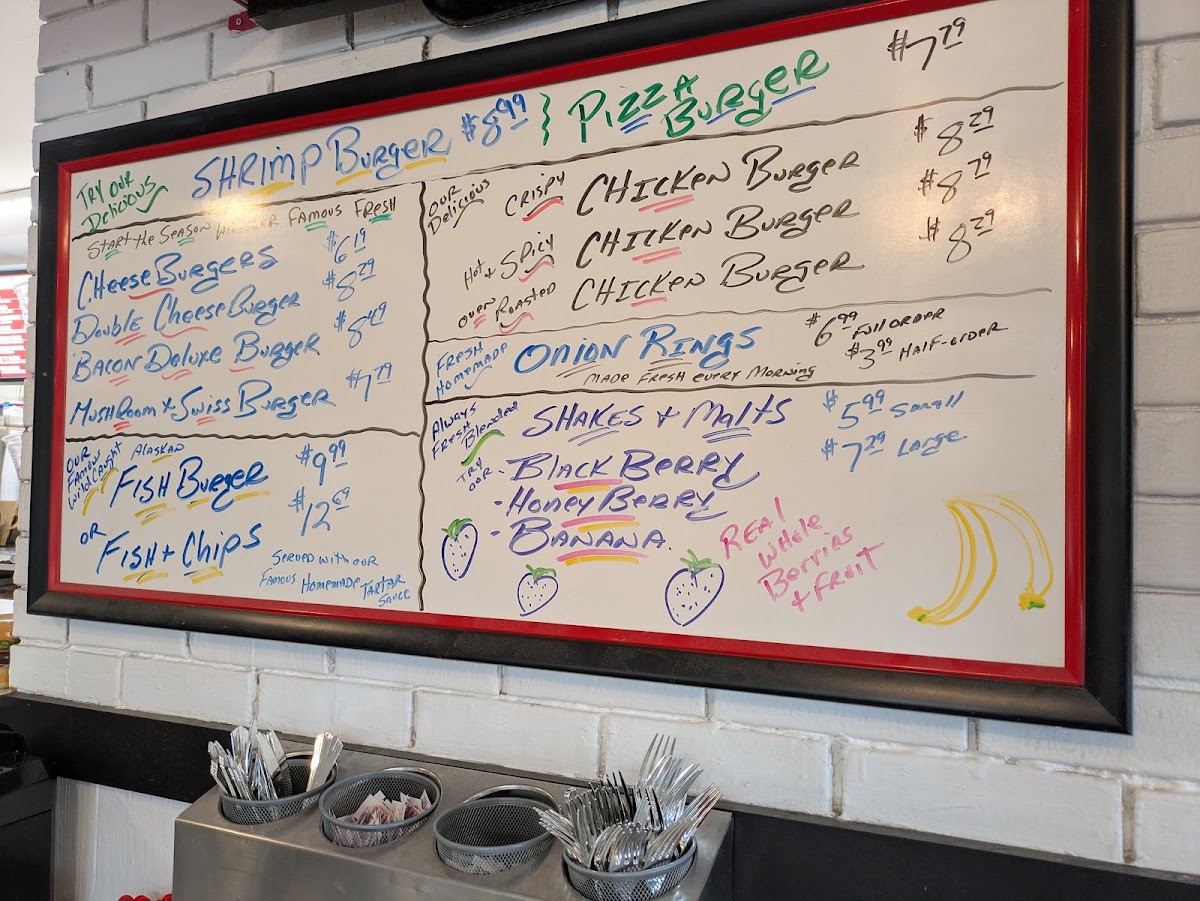 Try our
Delicious
SHRIMP BURGER $8.99
PIZZA
BURGER
$7.79
Start the Season our Famous Fresh
CHEESE BURGERS $6.19
DOUBLE CHEESE BURGER $8.29
BACON DELUXE BURGER $8.49
MUSHROOM & SWISS BURGER $7.79
OUR
FAMOUS
Wild Caught
ALASKAN
FISH BURGER $9.99
OR
FISH + CHIPS $12.69
SERVED WITH OUR
FAMOUS HOMEMADE TARTAR
SAUCE
OUR
Delicious
CRISPY CHICKEN BURGER $8.29
Hot + SPICY CHICKEN BURGER $8.79
OVEN ROASTED CHICKEN BURGER $8.29
FRESH
HOMEMADE
ONION RINGS
MADE FRESH EVERY MORNING
$6.99 Full ORDER
$3.99 HALF-ORDER
Always
FRESH
Blended
SHAKES + MALTS
$5.99 Small
$7.29 Large
TRY
OUR
- BLACK BERRY
- HONEY BERRY
- BANANA.
REAL
Whole
Berries
+ FRUIT